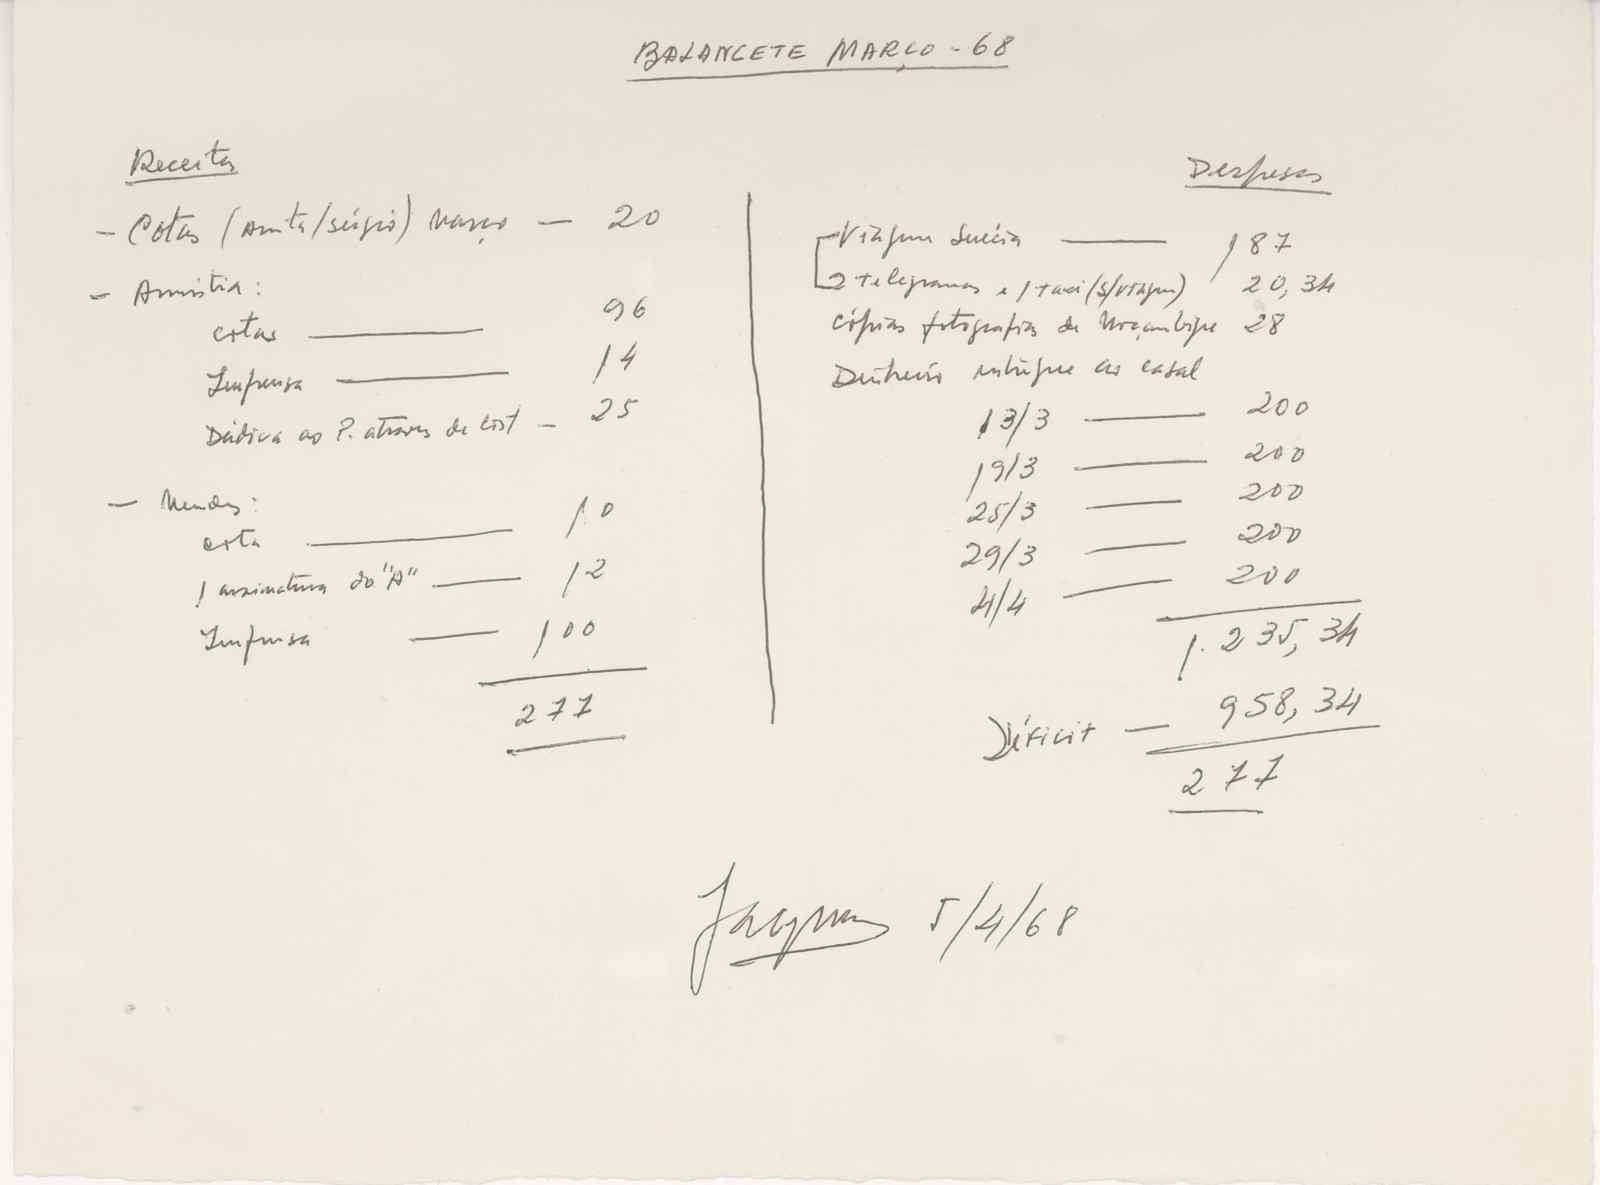 BALANCETE MARÇO - 68
Receitas
- Cotas (Anita/Sérgio) Março — 20
- Amnistia:
cotas — 96
Imprensa — 14
Dádiva ao P. atraves de List — 25
- Mendes:
cota — 10
1 assinatura do "A" — 12
Imprensa — 100
277
Despesas
Viagem Suécia — 187
2 telegramas e 1 taxi (s/viagem) 20,34
Cópias fotografias de Moçambique 28
Dinheiro entregue ao casal
13/3 — 200
19/3 — 200
25/3 — 200
29/3 — 200
4/4 — 200
1.235,34
Déficit — 958,34
277
Jacques 5/4/68